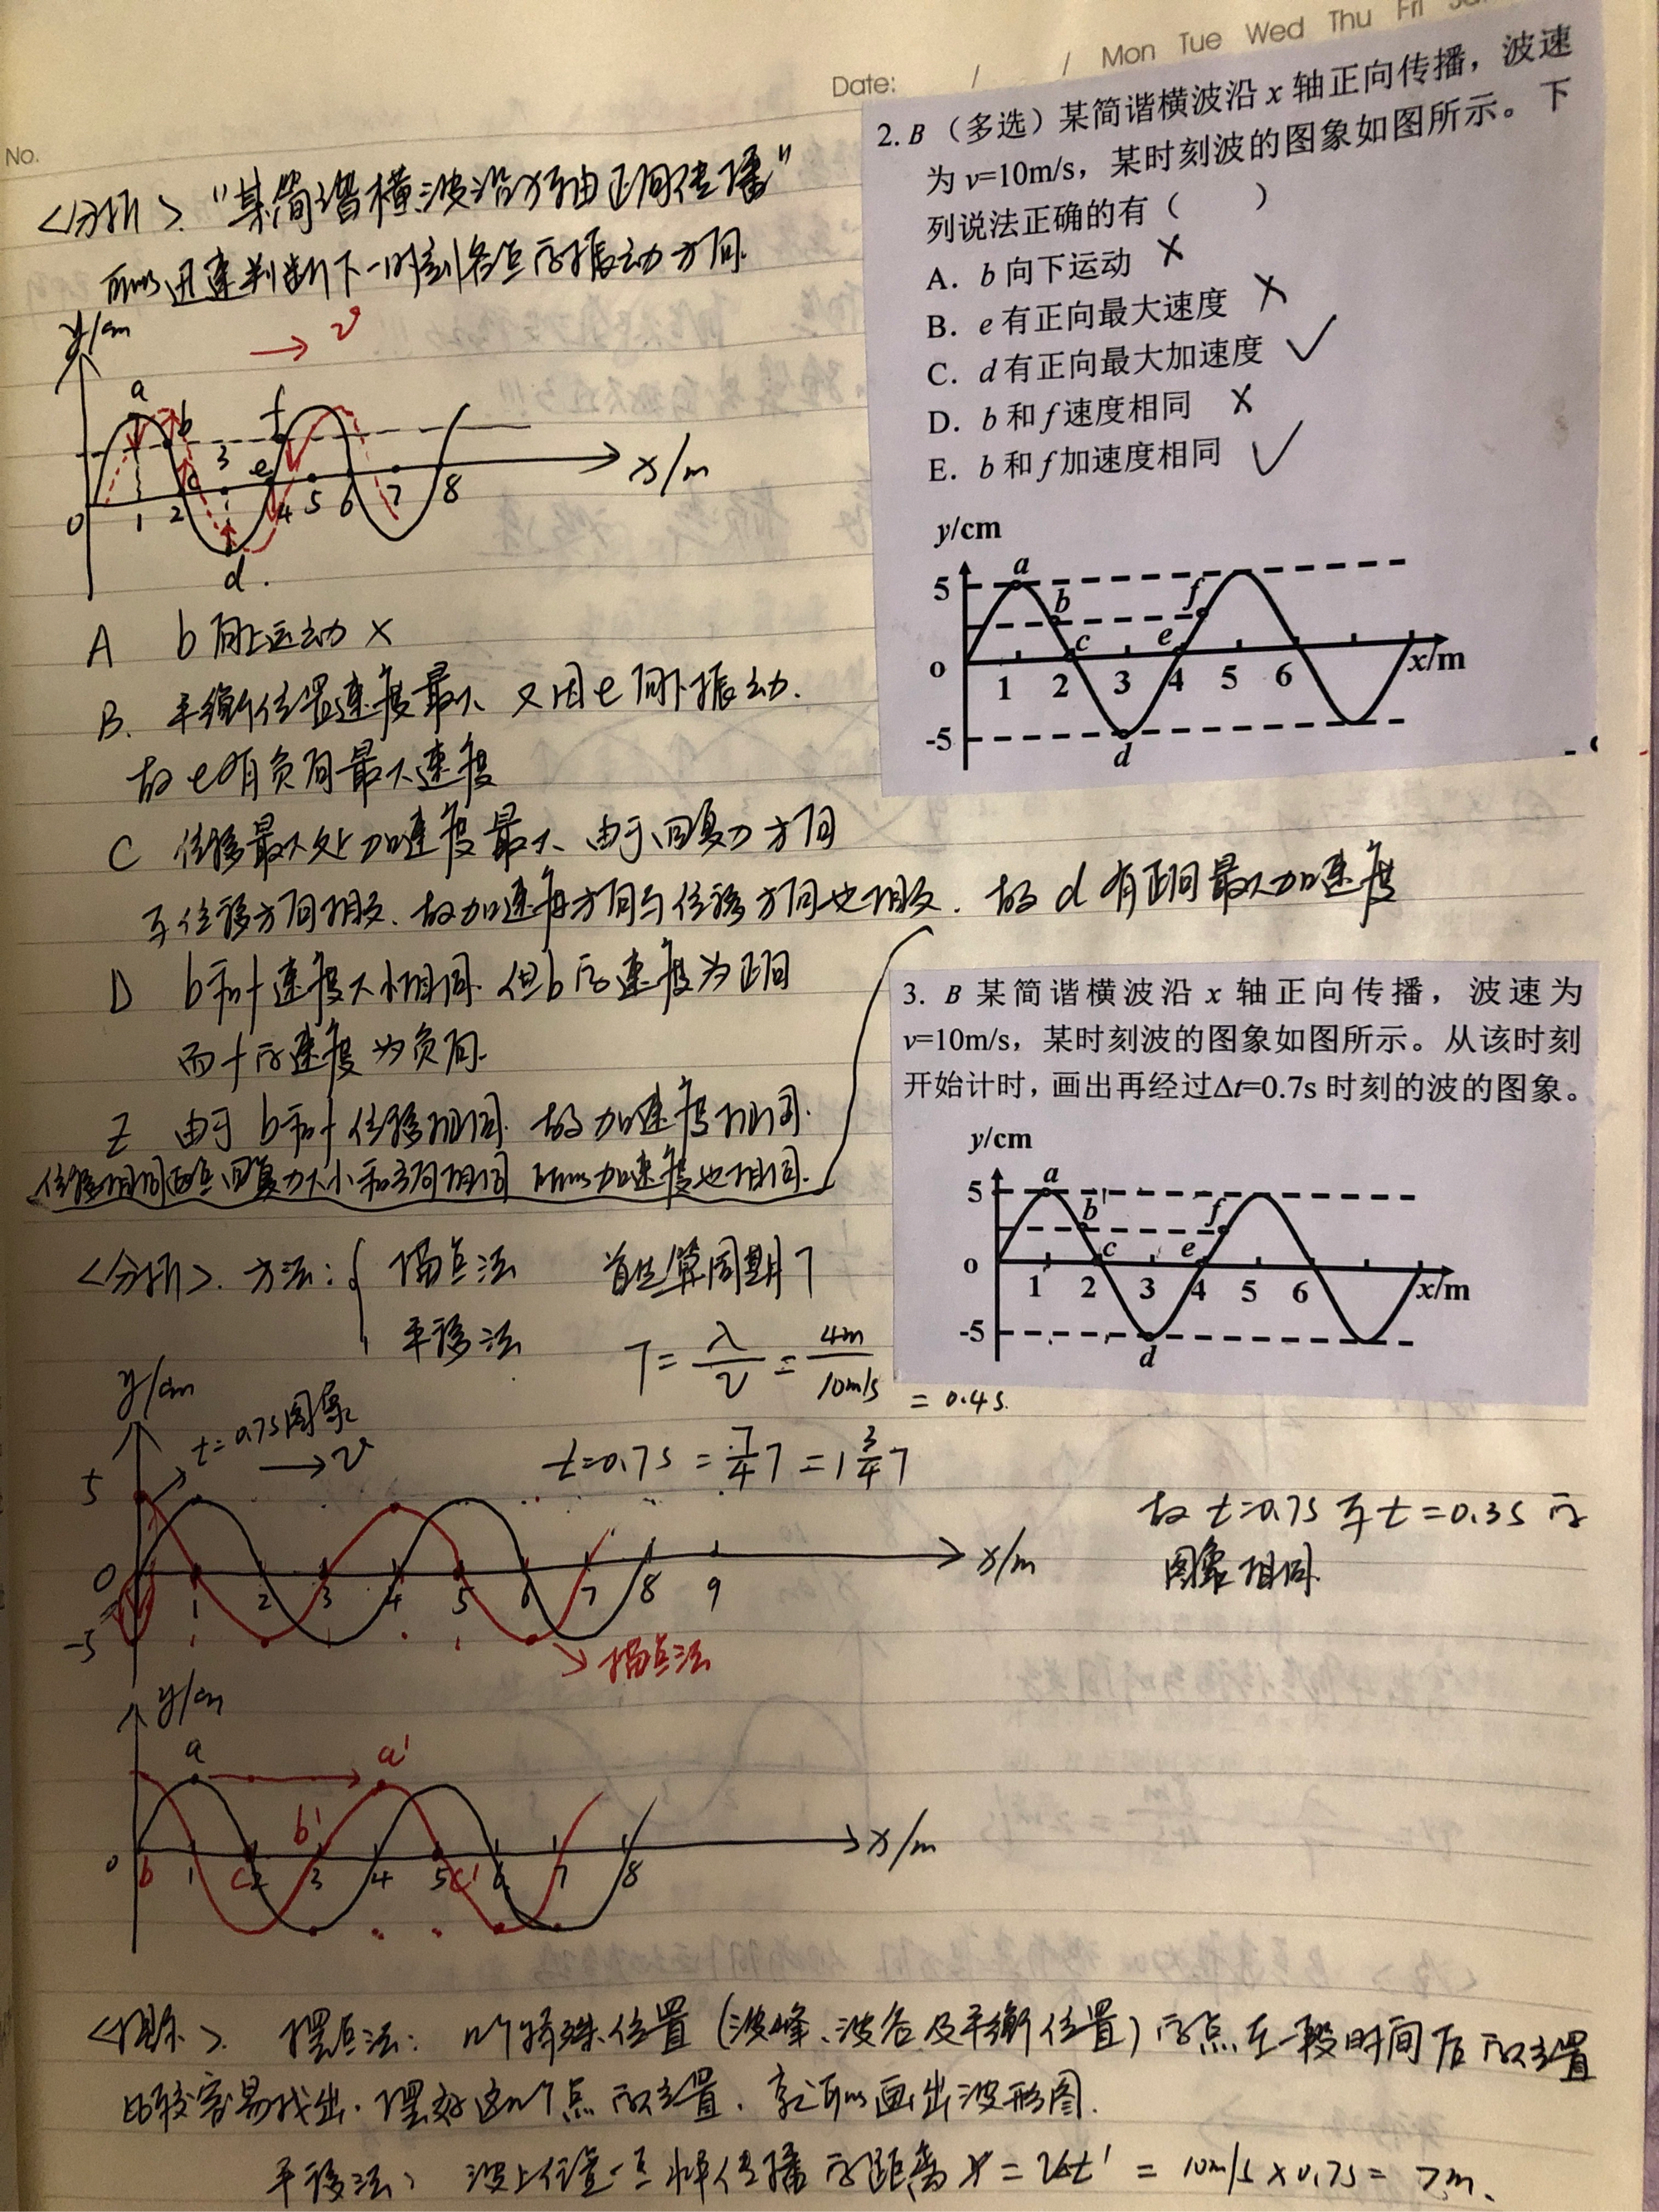 No.
Date: / / Mon Tue Wed Thu Fri
<分析>. "某简谐横波沿x轴正向传播"
可以迅速判断下一时刻各点的振动方向.
y/cm
v
a
b
f
c
3
e
0
1 2 4 5 6 7 8
x/m
d
A b向上运动 ×
B. 平衡位置速度最大 又因e向下振动.
故e有负向最大速度
C 位移最大处加速度最大、由于回复力方向
与位移方向相反. 故加速度方向与位移方向也相反. 故d有正向最大加速度
D b和f速度大小相同 但b的速度为正向
而f的速度为负向.
E 由于b和f位移相同 故加速度相同.
位移相同两点回复力大小和方向相同 所以加速度也相同.
2. B (多选) 某简谐横波沿 x 轴正向传播，波速
为 v=10m/s，某时刻波的图象如图所示。下
列说法正确的有（ ）
A. b 向下运动 ×
B. e 有正向最大速度 ×
C. d 有正向最大加速度 ✓
D. b 和 f 速度相同 ×
E. b 和 f 加速度相同 ✓
y/cm
5
a
b
f
c
e
o
1 2 3 4 5 6
x/m
-5
d
3. B 某简谐横波沿 x 轴正向传播，波速为
v=10m/s，某时刻波的图象如图所示。从该时刻
开始计时，画出再经过Δt=0.7s 时刻的波的图象。
y/cm
5
a
b
f
c
e
o
1 2 3 4 5 6
x/m
-5
d
<分析>. 方法: { 描点法
平移法
首先算周期T
T = λ/v = 4m/10m/s = 0.4s.
t=0.7s = 7/4 T = 1 3/4 T
故t=0.7s与t=0.3s的
图象相同.
y/cm
t=0.7s图象
v
5
0
1 2 3 4 5 6 7 8 9
x/m
-5
描点法
y/cm
a
a'
b'
0
b 1 c 2 3 4 5 c' 6 7 8
x/m
摆点法: n个特殊位置 (波峰、波谷及平衡位置) 的点在一段时间后的位置
比较容易找出. 摆好这n个点的位置, 就可以画出波形图.
平移法: 波上任意一点 传播的距离 x = vt' = 10m/s × 0.7s = 7m.